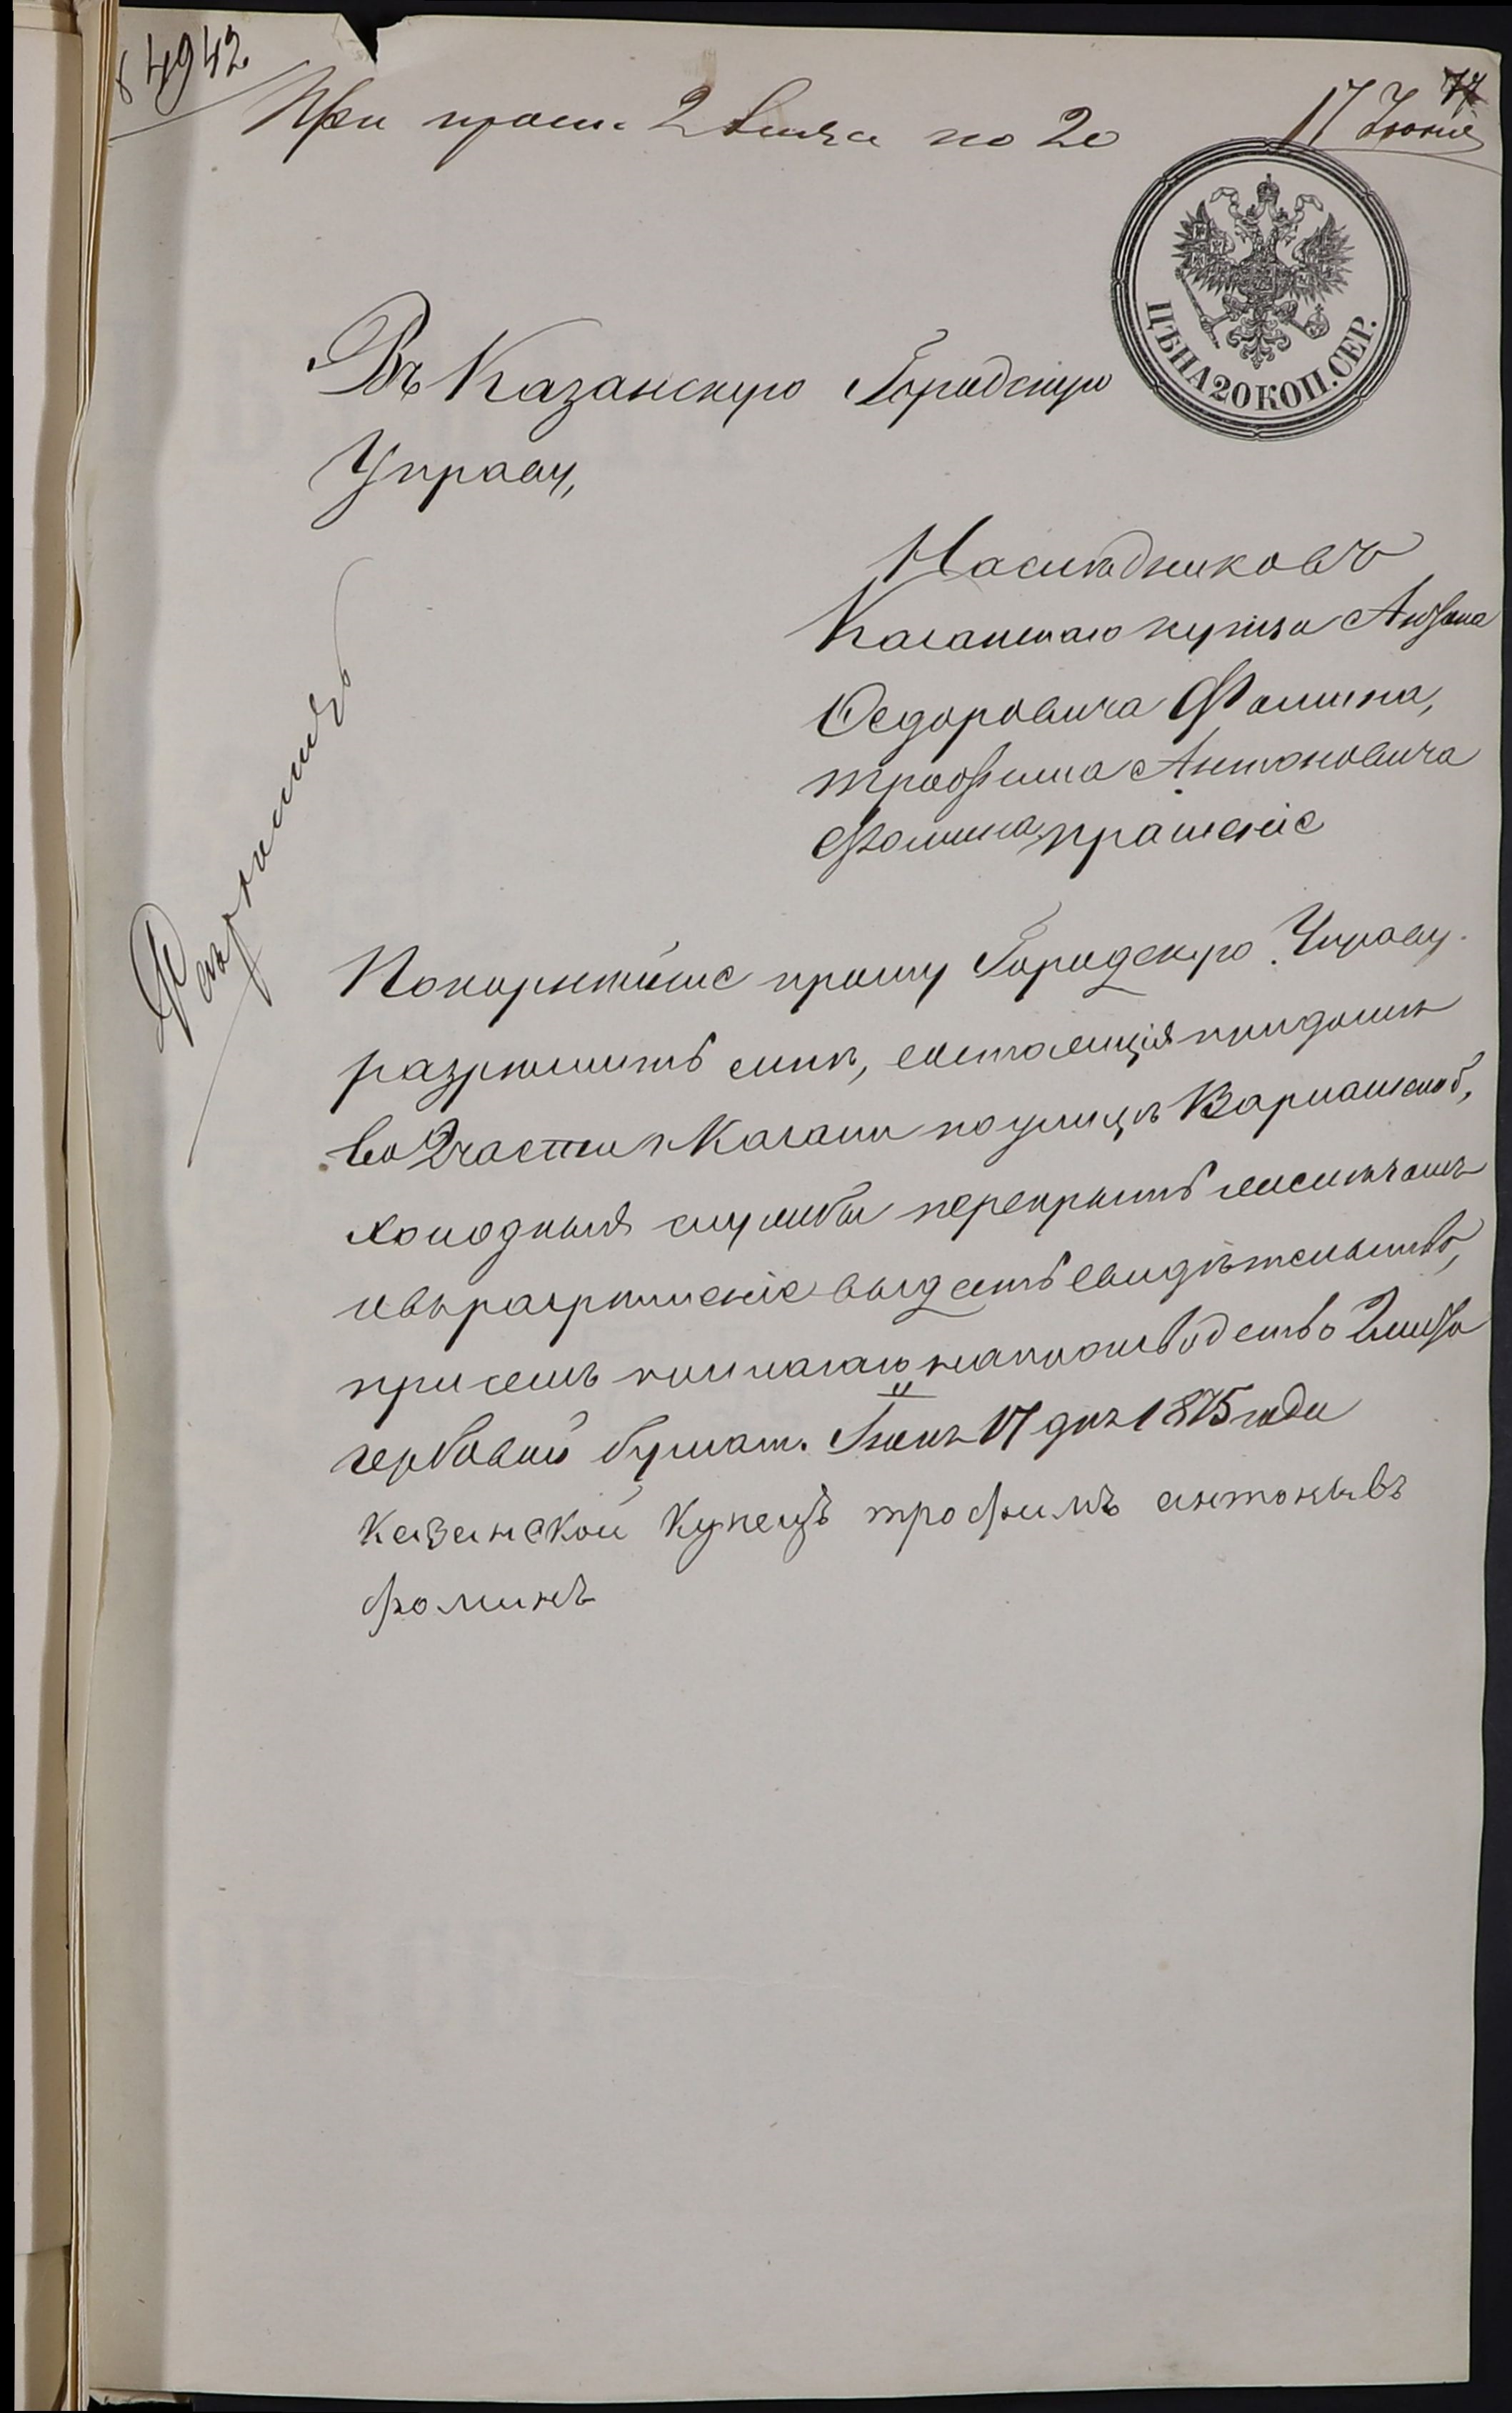 4942
При прош. 2 листа по 20
17 Июня
ЦѢНА 20 КОП. СЕР.
Въ Казанскую Городскую
Управу,
Наслѣдниковъ
Казанскаго купца Антона
Ѳедоровича Фомина,
Трофима Антоновича
Фомина, прошеніе
Разрѣшить
Покорнѣйше прошу Городскую Управу
разрѣшить мнѣ, состоящія при домѣ
во 2 части г. Казани по улицѣ Варламской,
холодныя службы перекрыть тесомъ
и въ разрѣшеніе выдать свидѣтельство,
при семъ прилагаю на производство 2 листа
гербовой бумаги. Іюня 17 дня 1875 года
казанской Купецъ трофимъ антоновъ
фоминъ